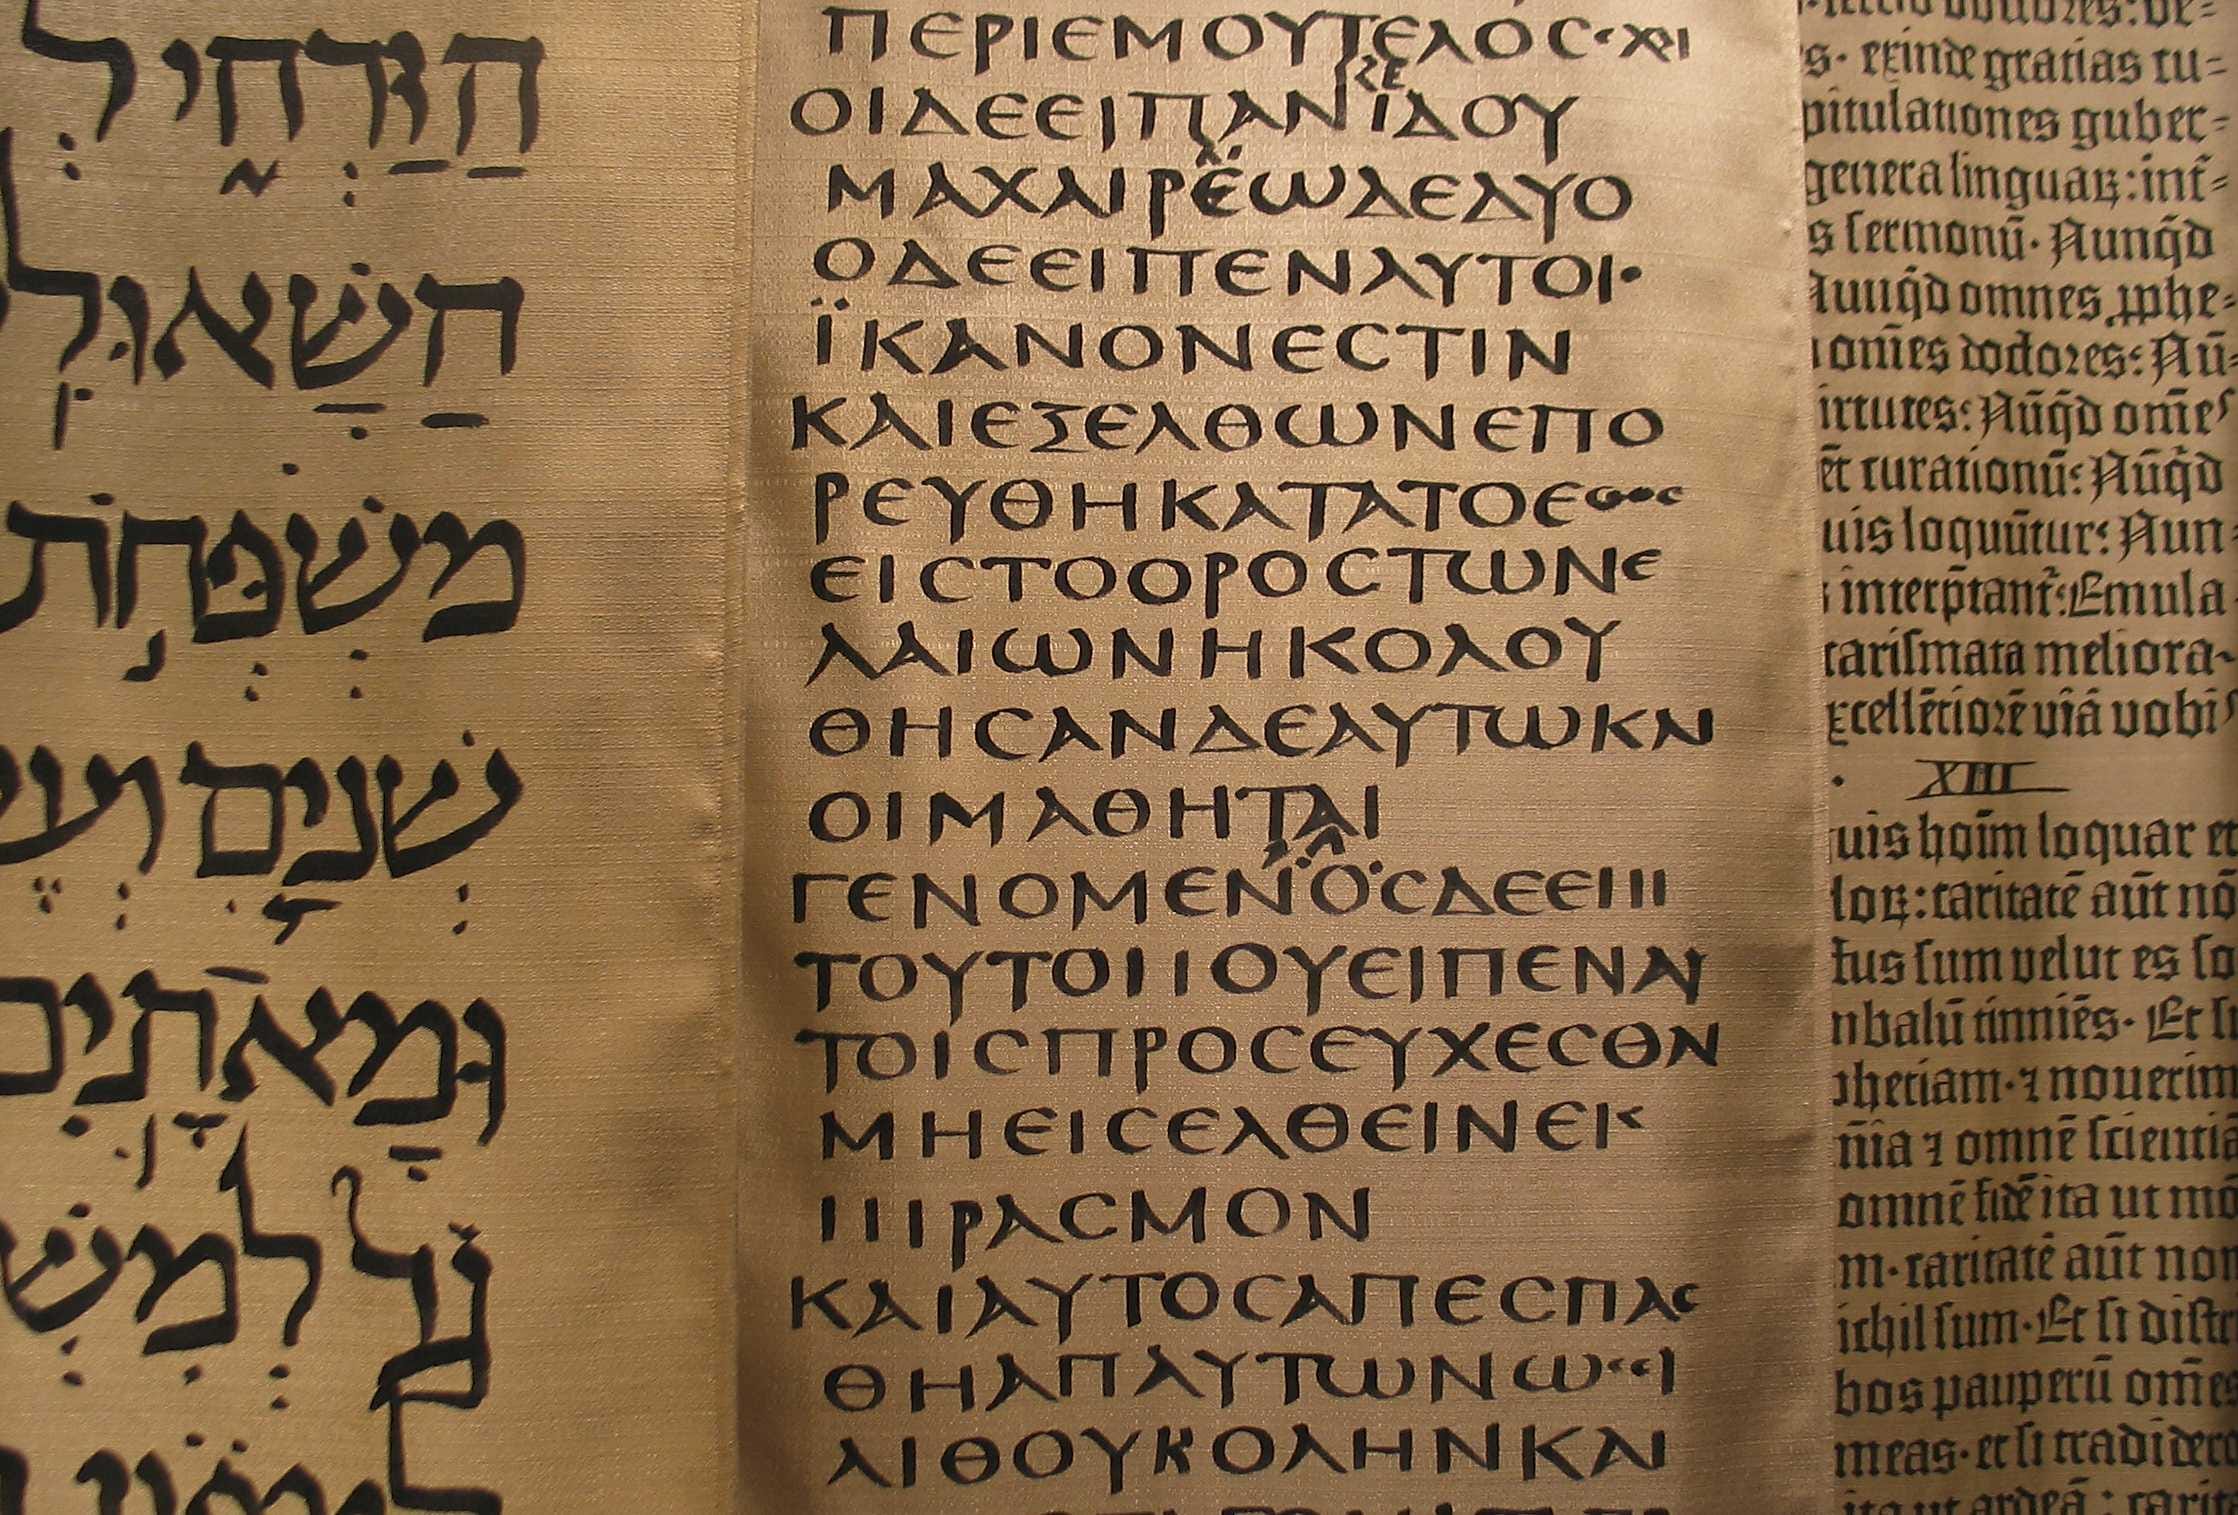 הַזַּרְחִי לְ
הַשָּׁאוּלִי
מִשְׁפְּחֹת
שְׁנַיִם וְעֶ
וּמָאתַיִם
ΠΕΡΙΕΜΟΥΤΕΛΟΣ·ΧΙ
ΟΙΔΕΕΙΠΑΝΪΔΟΥ
ΜΑΧΑΙΡΕΩΔΕΔΥΟ
ΟΔΕΕΙΠΕΝΑΥΤΟΙ·
ΪΚΑΝΟΝΕϹΤΙΝ
ΚΑΙΕΞΕΛΘΩΝΕΠΟ
ΡΕΥΘΗΚΑΤΑΤΟΕΘΟϹ
ΕΙϹΤΟΟΡΟϹΤΩΝΕ
ΛΑΙΩΝΗΚΟΛΟΥ
ΘΗϹΑΝΔΕΑΥΤΩΚΑΙ
ΟΙΜΑΘΗΤΑΙ
ΓΕΝΟΜΕΝΟϹΔΕΕΙΙΙ
ΤΟΥΤΟΙΙΟΥΕΙΠΕΝΑΥ
ΤΟΙϹΠΡΟϹΕΥΧΕϹΘΑΙ
ΜΗΕΙϹΕΛΘΕΙΝΕΙϹ
ΙΙΙΡΑϹΜΟΝ
ΚΑΙΑΥΤΟϹΑΠΕϹΠΑϹ
ΘΗΑΠΑΥΤΩΝΩϹΕΙ
ΛΙΘΟΥΚΟΛΗΝΚΑΙ
s· exinde gratias cu-
pitulationes guber-
genera linguaꝝ: int̄-
s sermonū· Nunq̄d
Nunq̄d omnes ꝓphe-
omēs doctores: Nū-
irtutes: Nūq̄d om̄es
ēt curationū: Nūq̄d
uis loquūtur: Nun-
interp̄tant̄: Emula-
carismata meliora·
xcellētiorē viā vobis
XIII
uis hoīm loquar et
loꝝ: caritatē aūt nō
tus sum velut es so
nbalū tinniēs· Et si
phetiam· ⁊ noverim
n̄ia ⁊ omnē scientiā
omnē fidē ita ut mō
m· caritatē aūt non
ichil sum· Et si distr
bos pauperū om̄es
meas· et si tradidero